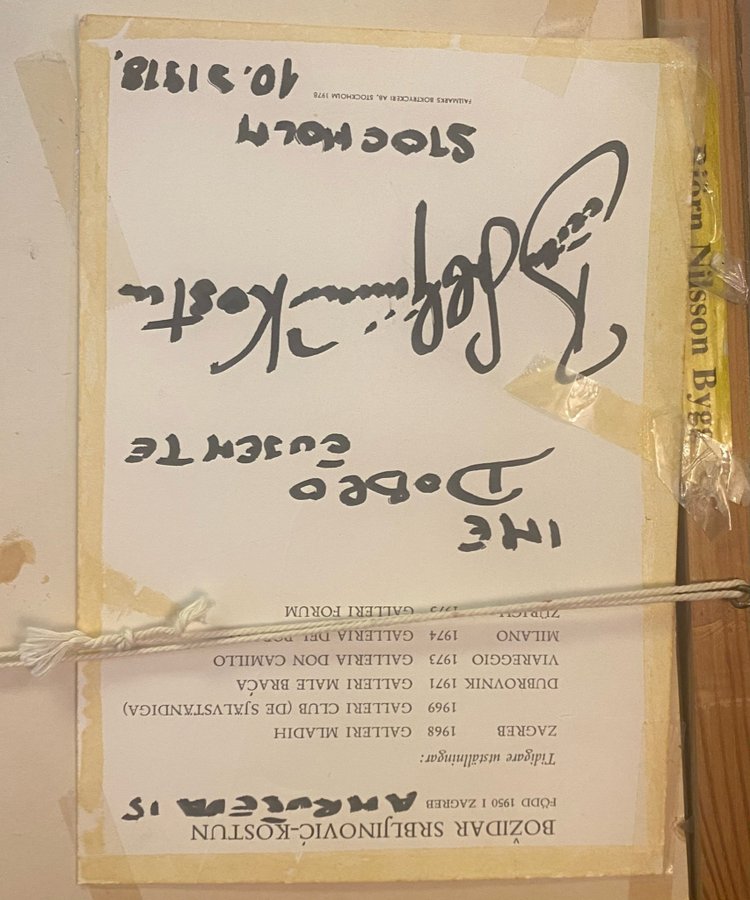 BOŽIDAR SRBLJINOVIĆ-KOSTUN
FÖDD 1950 I ZAGREB AMRUŠEVA 15
Tidigare utställningar:
ZAGREB 1968 GALLERI MLADIH
1969 GALLERI CLUB (DE SJÄLVSTÄNDIGA)
DUBROVNIK 1971 GALLERI MALE BRAĆA
VIAREGGIO 1973 GALLERIA DON CAMILLO
MILANO 1974 GALLERIA DEL
ZÜRICH 1975 GALLERI FORUM
IME
DOBRO
ČUJEM TE
Kostun
STOCHOLM
FALLMARKS BOKTRYCKERI AB, STOCKHOLM 1978
10. 3 1978.
Björn Nilsson Bygg